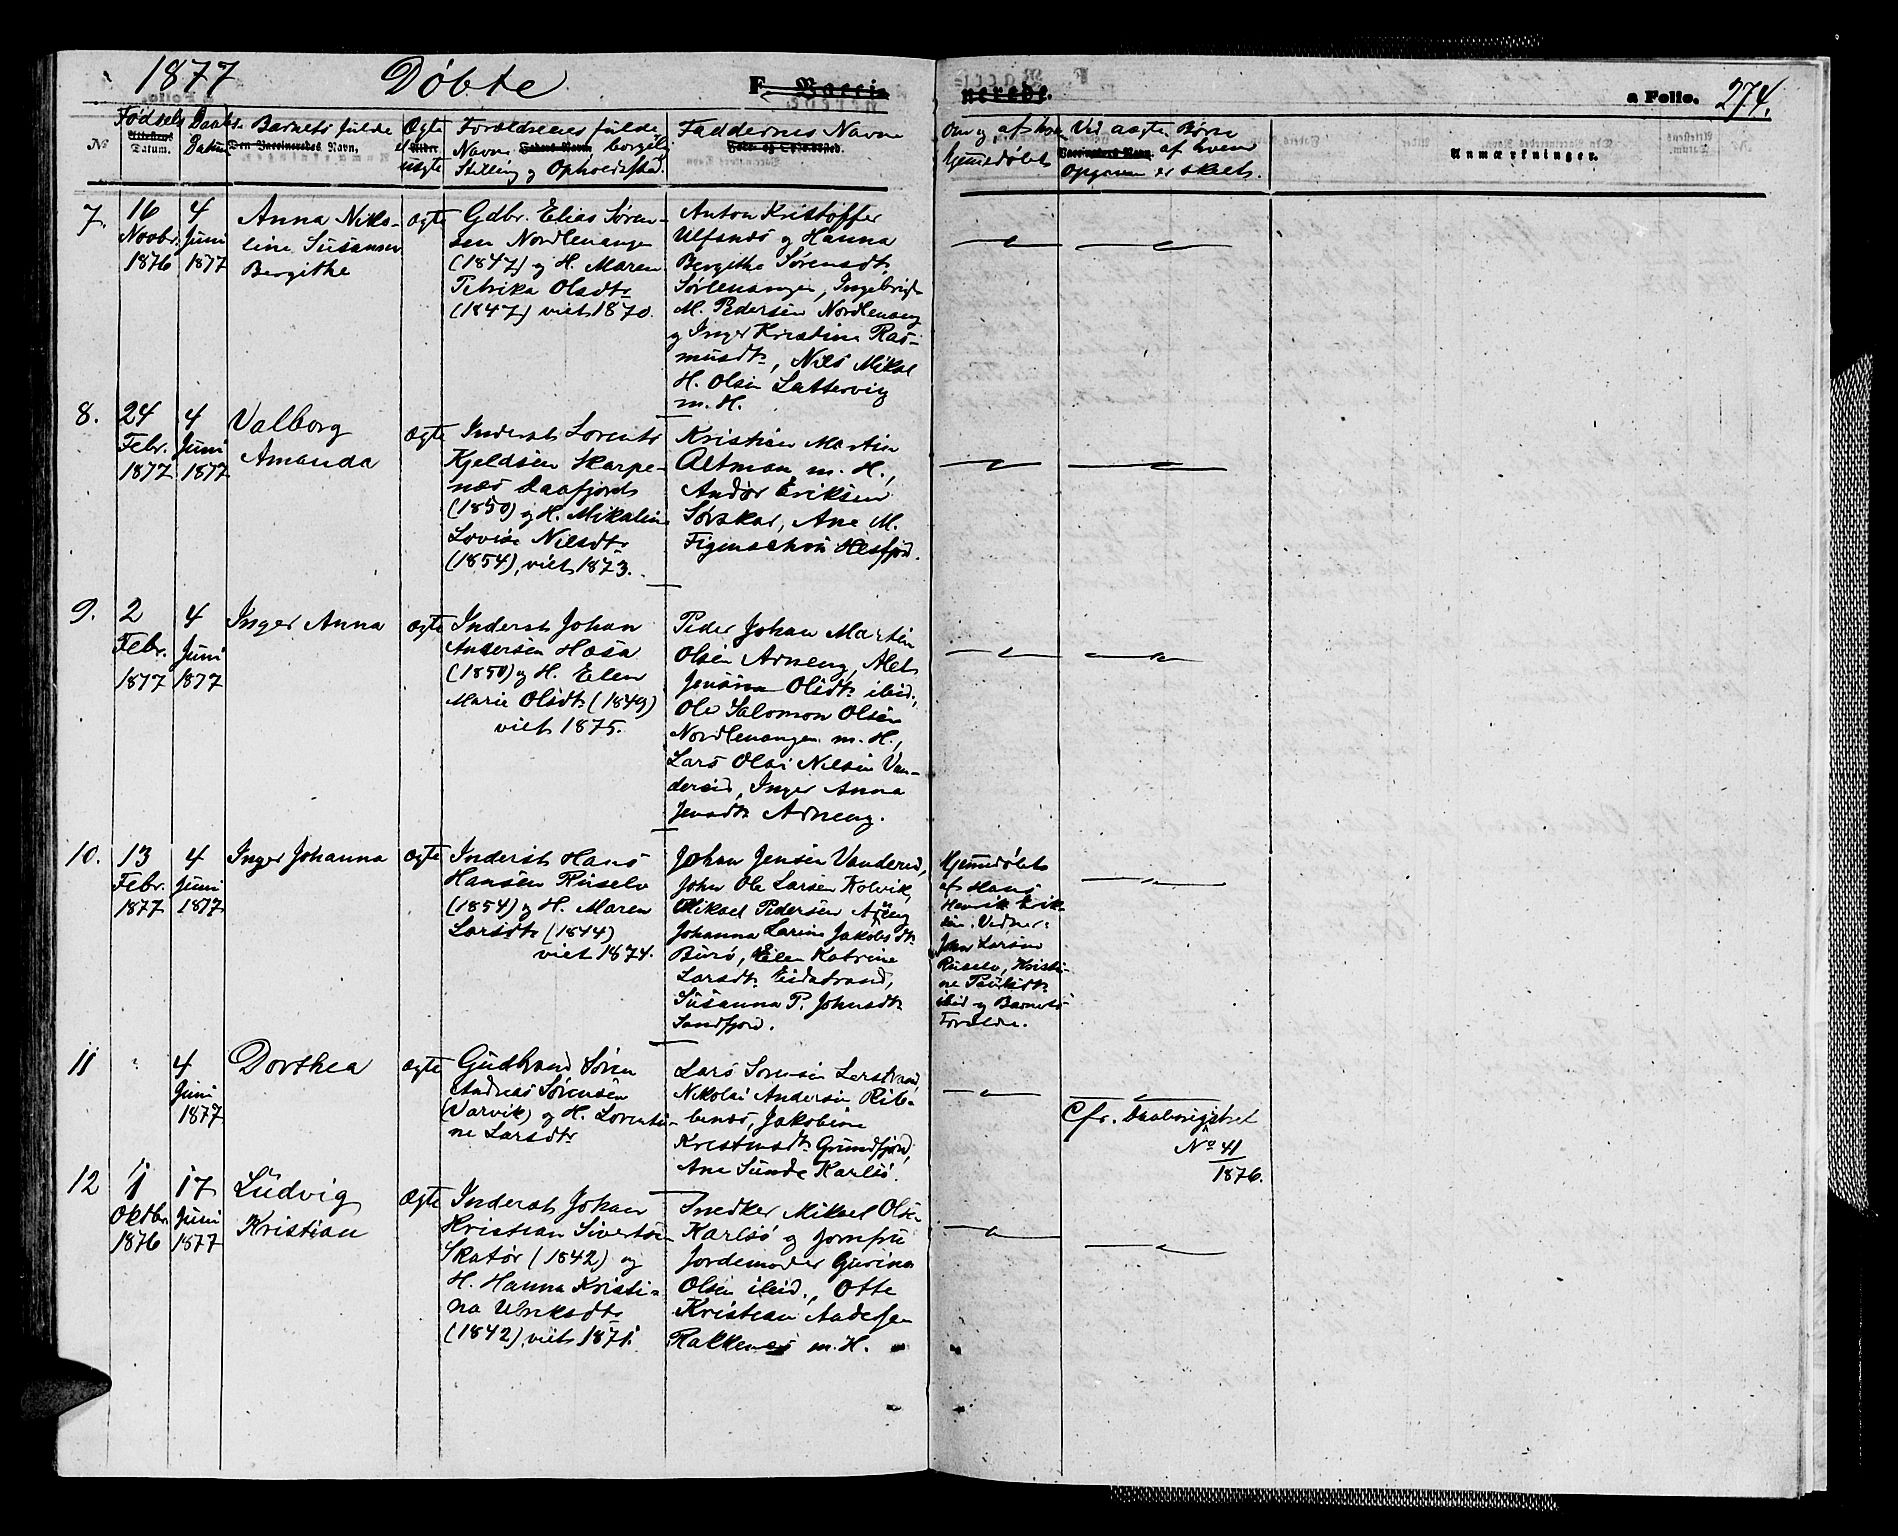 1877 Døbte F. Vacci- nerede. a Folio. 274.
№
Fødsels Attestens Datum.
Daabs Datum
Barnets fulde Den Vaccineredes Navn,
Ægte el. Alder. uægte
Forældrenes fulde
Navn Faders Navn borgelig
Stilling og Opholdssted.
Faddernes Navne
Føde- og Opholdssted.
Om og af hvem
hjemmedøbt
Ved uægte Børn
Vaccinatørs Navn. af hvem
Opgaven er skeet.
Anmærkninger.
7.
16
Novbr.
1876
4
Juni
1877
Anna Niko-
line Susanna
Bergithe
Ægte
Gdbr. Elias Søren-
sen Nordlenangen
(1847) og H. Maren
Petrika Olsdtr
(1847) viet 1870.
Anton Kristoffer
Ulfsnes og Hanna
Bergithe Sørensdtr
Sørlenangen, Ingebrigt
M. Pedersen Nordlenang
og Inger Kirstine Ras-
musdtr, Nils Mikal
H. Olsen Lattervig
m. H.
8.
24
Febr.
1877
4
Juni
1877
Valborg
Amanda
Ægte
Inderst Lorents
Kjeldsen Skarpe-
næs Laafjord
(1850) og H. Mikaline
Lovise Nilsdtr
(1854), viet 1873.
Kristian Martin
Altman m. H.,
Andør Eriksen
Sørskar, Ane M.
Figenschou Hesfjord.
9.
2
Febr.
1877
4
Juni
1877
Inger Anna
Ægte
Inderst Johan
Andersen
(1850) og H. Elen
Marie Olsdtr (1849)
viet 1875.
Peder Johan Martin
Olsen Arneng, Alet
Jensine Olsdtr ibid.,
Ole Salomon Olsen
Nordlenangen m. H.,
Lars Olai Nilsen Van-
dereid, Inger Anna
Jensdtr Arneng.
10.
13
Febr.
1877
4
Juni
1877
Inger Johanna
Ægte
Inderst Hans
Hansen Ruselv
(1854) og H. Maren
Larsdtr (1844)
viet 1874.
Johan Jensen Vandereid,
John Ole Larsen Kolvik,
Mikael Pedersen Arneng
Johanna Larine Jakobsdtr
Burø, Elen Katrine
Larsdtr Eidstrand,
Susanna P. Johnsdtr
Sandfjord.
Hjemmedøbt
af Hans
Henrik Erik-
sen. Vidner:
John Larsen
Ruselv, Kristi-
ne Paulsdtr
ibid og Barnets
Forældre.
11
4
Juni
1877
Dorthea
Ægte
Gudbrand Søren
Andreas Sørensen
(Jarvik) og H. Lorenti-
ne Larsdtr
Lars Sørensen Lerstrand,
Nikolai Andersen Rib-
benes, Jakobine
Krestensdtr Grundfjord,
Ane Sunde Karlsø.
Cfr. Daabsregistret
No 41
1876.
12
1
Oktbr.
1876
17
Juni
1877
Ludvig
Kristian
Ægte
Inderst Johan
Kristian Sivertsen
Skatør (1842) og
H. Hanna Kristi-
na Ulriksdtr
(1842), viet 1871.
Snedker Mikael Olsen
Karlsø og Jomfru
Jordemoder Gurina
Olsen ibid., Otte
Kristian Andersen
Rakkenes m. H.